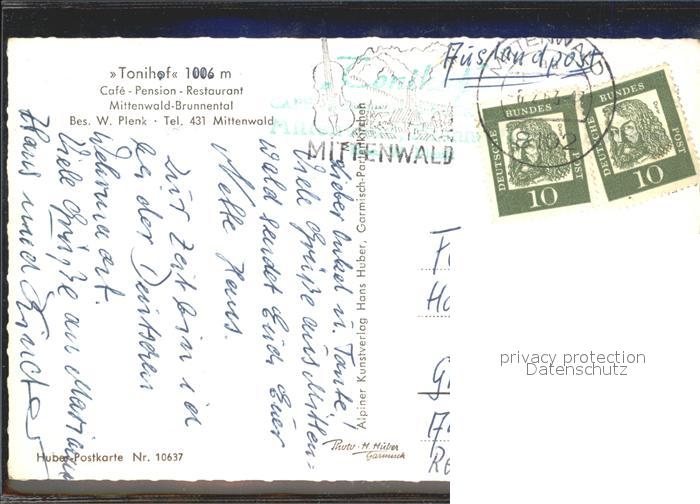 »Tonihof« 1006 m
Café - Pension - Restaurant
Mittenwald-Brunnental
Bes. W. Plenk · Tel. 431 Mittenwald
Auslandpost
MITTENWALD
MITTENWALD
8102
DEUTSCHE BUNDESPOST
10
DEUTSCHE BUNDESPOST
10
Lieber Onkel u. Tante!
Viele Grüße aus Mitten=
wald sendet Euch Euer
Neffe Hans.
Zur Zeit bin ich
bei der Deutschen
Wehrmacht.
Viele Grüße an Mariann
Hans und
Alpiner Kunstverlag Hans Huber, Garmisch-Partenkirchen
Photo-H. Huber
Garmisch
Huber-Postkarte Nr. 10637
privacy protection
Datenschutz